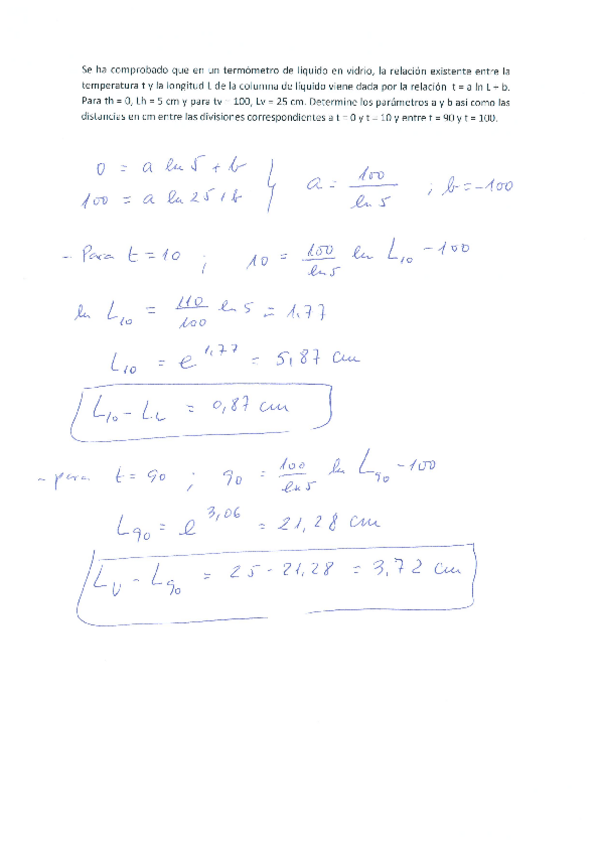 Se ha comprobado que en un termómetro de líquido en vidrio, la relación existente entre la
temperatura t y la longitud L de la columna de líquido viene dada por la relación t = a ln L + b.
Para th = 0, Lh = 5 cm y para tv = 100, Lv = 25 cm. Determine los parámetros a y b así como las
distancias en cm entre las divisiones correspondientes a t = 0 y t = 10 y entre t = 90 y t = 100.
0 = a ln 5 + b
100 = a ln 25 + b } a = 100 / ln 5 ; b = -100
- Para t = 10 ; 10 = 100 / ln 5 ln L10 - 100
ln L10 = 110 / 100 ln 5 = 1,77
L10 = e^1,77 = 5,87 cm
L10 - Lh = 0,87 cm
- para t = 90 ; 90 = 100 / ln 5 ln L90 - 100
L90 = e^3,06 = 21,28 cm
LV - L90 = 25 - 21,28 = 3,72 cm